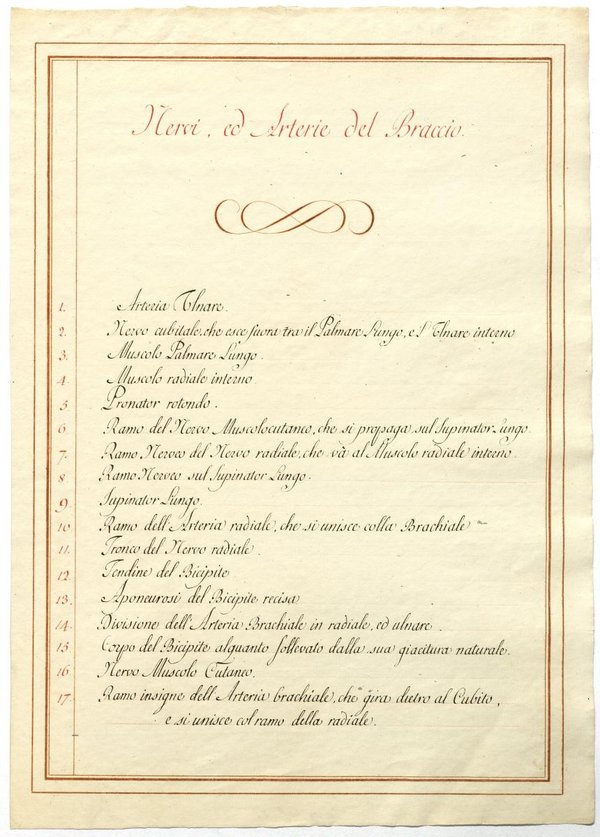 Nervi, ed Arterie del Braccio.
1. Arteria Ulnare.
2. Nervo cubitale, che esce fuora tra il Palmare Lungo, e l'Ulnare interno
3. Muscolo Palmare Lungo.
4. Muscolo radiale interno.
5 Pronator rotondo.
6 Ramo del Nervo Muscolocutaneo, che si propaga sul Supinator Lungo.
7. Ramo Nerveo del Nervo radiale, che và al Muscolo radiale interno.
8. Ramo Nerveo sul Supinator Lungo.
9. Supinator Lungo.
10. Ramo dell'Arteria radiale, che si unisce colla Brachiale
11. Tronco del Nervo radiale.
12. Tendine del Bicipite
13. Aponeurosi del Bicipite recisa
14. Divisione dell'Arteria Brachiale in radiale, ed ulnare.
15. Corpo del Bicipite alquanto sollevato dalla sua giacitura naturale.
16 Nervo Muscolo Cutaneo.
17. Ramo insigne dell'Arteria brachiale, che gira dietro al Cubito,
e si unisce col ramo della radiale.